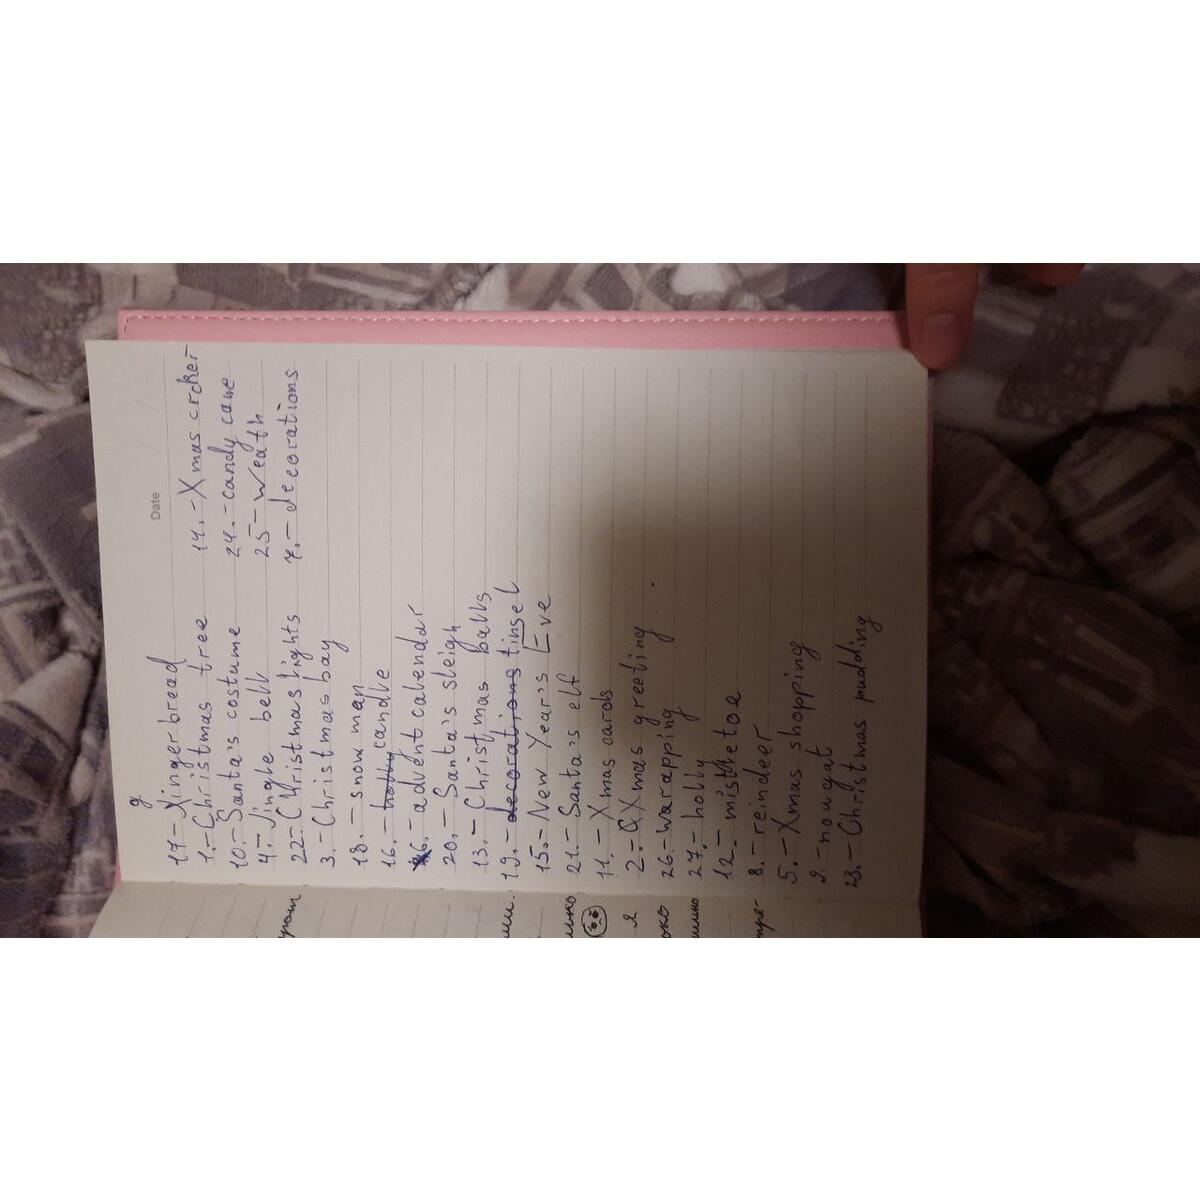 Date
17.- gingerbread
1.- Christmas tree
10.- Santa's costume
4.- Jingle bell
22.- Christmas lights
3.- Christmas bay
18.- snow man
16.- holly candle
6.- advent calendar
20.- Santa's sleigh
13.- Christmas balls
19.- decorations tinsel
15.- New Year's Eve
21.- Santa's elf
11.- Xmas cards
2.- Xmas greeting
26.- warapping
27.- holly
12.- mistletoe
8.- reinder
5.- Xmas shopping
2.- nougat
23.- Christmas pudding
14.- Xmas crcker
24.- candy cane
25- weath
7.- decorations